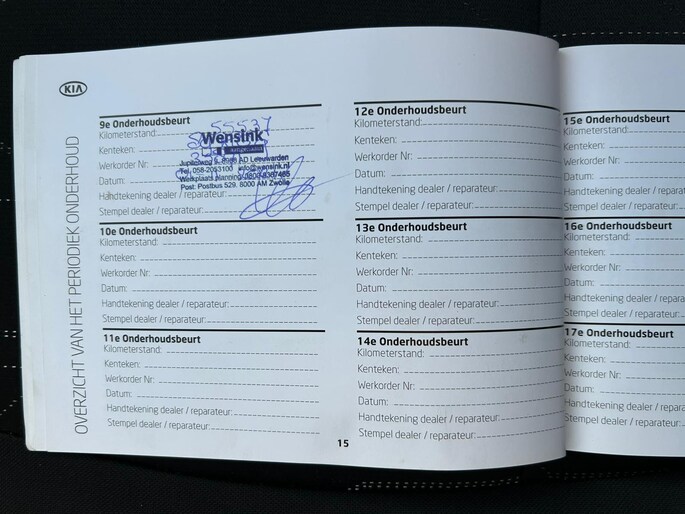 KIA
OVERZICHT VAN HET PERIODIEK ONDERHOUD
9e Onderhoudsbeurt
Kilometerstand: 55537
Kenteken:
Werkorder Nr:
Datum:
Handtekening dealer / reparateur:
Stempel dealer / reparateur:
Wensink
Leeuwarden
Tel. 058-2053100 info@wensink.nl
Werkplaats planning
Post: Postbus 529, 8000 AM Zwolle
10e Onderhoudsbeurt
Kilometerstand:
Kenteken:
Werkorder Nr:
Datum:
Handtekening dealer / reparateur:
Stempel dealer / reparateur:
11e Onderhoudsbeurt
Kilometerstand:
Kenteken:
Werkorder Nr:
Datum:
Handtekening dealer / reparateur:
Stempel dealer / reparateur:
12e Onderhoudsbeurt
Kilometerstand:
Kenteken:
Werkorder Nr:
Datum:
Handtekening dealer / reparateur:
Stempel dealer / reparateur:
13e Onderhoudsbeurt
Kilometerstand:
Kenteken:
Werkorder Nr:
Datum:
Handtekening dealer / reparateur:
Stempel dealer / reparateur:
14e Onderhoudsbeurt
Kilometerstand:
Kenteken:
Werkorder Nr:
Datum:
Handtekening dealer / reparateur:
Stempel dealer / reparateur:
15
15e Onderhoudsbeurt
Kilometerstand:
Kenteken:
Werkorder Nr:
Datum:
Handtekening dealer / repara
Stempel dealer / reparateur:
16e Onderhoudsbeurt
Kilometerstand:
Kenteken:
Werkorder Nr:
Datum:
Handtekening dealer / repara
Stempel dealer / reparateur:
17e Onderhoudsbeurt
Kilometerstand:
Kenteken:
Werkorder Nr:
Datum:
Handtekening dealer / repara
Stempel dealer / reparateur: